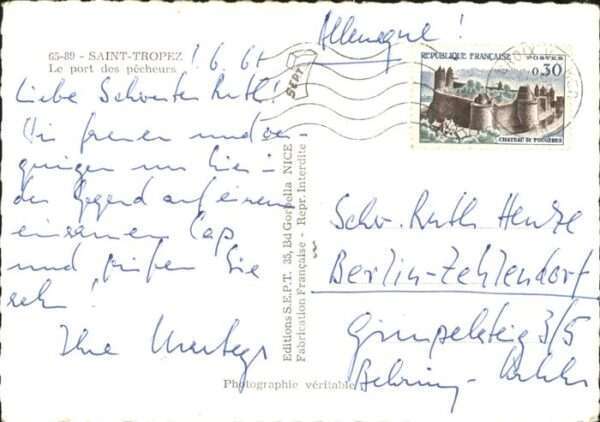 65-89 - SAINT-TROPEZ
Le port des pêcheurs
1.6.61
Liebe Schwester Ruth!
Wir freuen und ver-
gnügen uns hier in
der Gegend auf einem
einsamen Cap
und grüßen Sie
sehr!
Ihre
Allemagne!
RÉPUBLIQUE FRANÇAISE
POSTES
0,30
CHATEAU DE FOUGÈRES
SEPT
Editions S.E.P.T. 35, Bd Gorbella NICE
Fabrication Française - Repr. Interdite
Schw. Ruth Hentze
Berlin-Zehlendorf
Gimpelsteig 3/5
Behring-
Photographie véritable